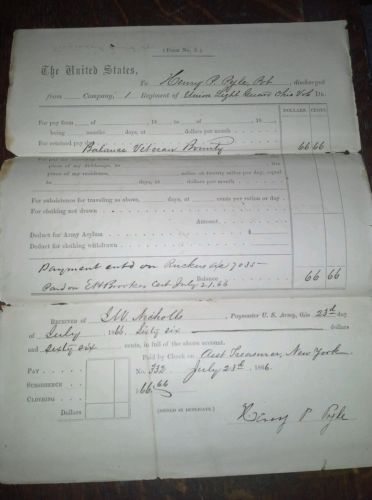 ( Form No. 5. )
The United States,
To Henry P. Pyle, Pvt , discharged
from Company, 1 Regiment of Union Light Guard Ohio Vols Dr.
DOLLARS. CENTS.
For pay from of 18 to of 18
being months days, at dollars per month
For retained pay 66 66
Balance Veteran Bounty
place of my residence,
to days, at dollars per month
For subsistence for traveling as above, days, at cents per ration or day
For clothing not drawn
Amount,
Deduct for Army Asylum $
Deduct for clothing withdrawn
Payment entd on
Balance 66 66
July 21. 66
RECEIVED OF I. W. Nicholls , Paymaster U. S. Army, this 23d day
of July 1866, Sixty six dollars
and Sixty six cents, in full of the above account.
PAY
SUBSISTENCE
CLOTHING
Dollars
Paid by Check on Asst Treasurer, New York
No. 332 July 23d 1866.
$66.66
(SIGNED IN DUPLICATE.)
Henry P Pyle